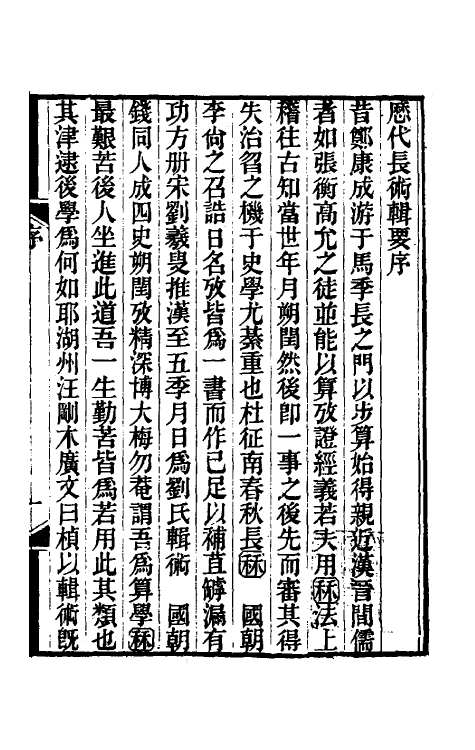 歷代長術輯要序
昔鄭康成游于馬季長之門以步算始得親近漢晉間儒
者如張衡高允之徒並能以算攷證經義若夫用秝法上
稽往古知當世年月朔閏然後卽一事之後先而審其得
失治㫚之機于史學尤綦重也杜征南春秋長秝　國朝
李尙之召誥日名攷皆爲一書而作已足以補苴罅漏有
功方册宋劉羲叟推漢至五季月日爲劉氏輯術　國朝
錢同人成四史朔閏攷精深博大梅勿菴謂吾爲算學秝
最艱苦後人坐進此道吾一生勤苦皆爲若用此其類也
其津逮後學爲何如耶湖州汪剛木廣文曰楨以輯術旣
序
一